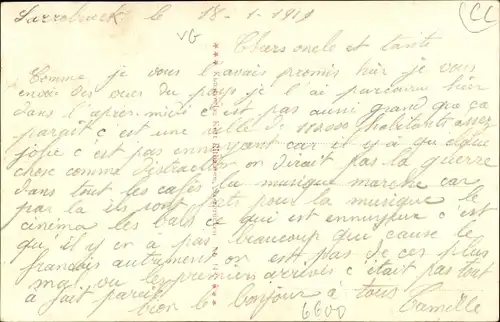 Sarrebruck le 18-1-1919
VG
CL
Chers oncle et tante
Comme je vous l'avais promis hier je vous
envoie des vues du pays je l'ai parcouru hier
dans l'apres-midi c'est pas aussi grand que ça
parait c'est une ville de habitants assez
jolie c'est pas ennuyant car il y a quelque
chose comme distraction on dirait pas la guerre
dans tout les cafés la musique marche car
par la ils sont forts pour la musique le
cinéma les bals ce qui est ennuyeux c'est
qu'il y en a pas beaucoup que cause le
francais autrement on est pas de ces plus
mal ou les premiers arrivés c'était pas tout
a fait pareil
bien le bonjour à tous
Camille
6600